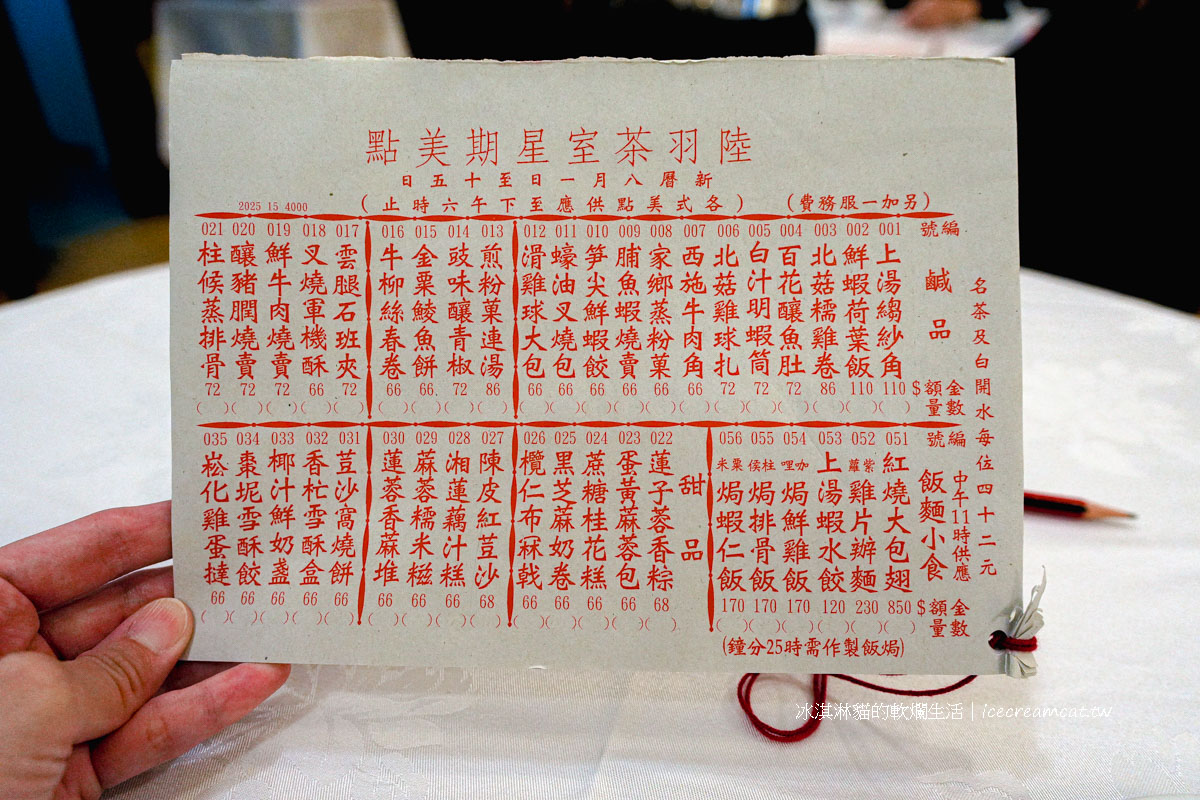 陸羽茶室星期美點
新曆八月一日至十五日
(各式美點供應至下午六時止)
(另加一服務費)
2025 15 4000
名茶及白開水每位四十二元
編號
鹹品
金額$
數量
001 上湯縐紗角 110
002 鮮蝦荷葉飯 110
003 北菇糯雞卷 86
004 百花釀魚肚 72
005 白汁明蝦筒 72
006 北菇雞球扎 72
007 西施牛肉角 66
008 家鄉蒸粉菓 66
009 脯魚蝦燒賣 66
010 笋尖鮮蝦餃 66
011 蠔油叉燒包 66
012 滑雞球大包 66
013 煎粉菓連湯 86
014 豉味釀青椒 72
015 金粟鯪魚餅 66
016 牛柳絲春卷 66
017 雲腿石班夾 72
018 叉燒軍機酥 66
019 鮮牛肉燒賣 72
020 釀豬膶燒賣 72
021 柱候蒸排骨 72
編號
飯麵小食
中午11時供應
金額$
數量
051 紅燒大包翅 850
052 紫蘿雞片辦麵 230
053 上湯蝦水餃 120
054 咖哩焗鮮雞飯 170
055 柱侯焗排骨飯 170
056 粟米焗蝦仁飯 170
(焗飯製作需時25分鐘)
甜品
022 蓮子蓉香粽 68
023 蛋黃蔴蓉包 66
024 蔗糖桂花糕 66
025 黑芝蔴奶卷 66
026 欖仁布冧戟 66
027 陳皮紅荳沙 68
028 湘蓮藕汁糕 66
029 蔴蓉糯米糍 66
030 蓮蓉香蔴堆 66
031 荳沙窩燒餅 66
032 香杧雪酥盒 66
033 椰汁鮮奶盞 66
034 棗坭雪酥餃 66
035 崧化雞蛋撻 66
冰淇淋貓的軟爛生活 | icecreamcat.tw